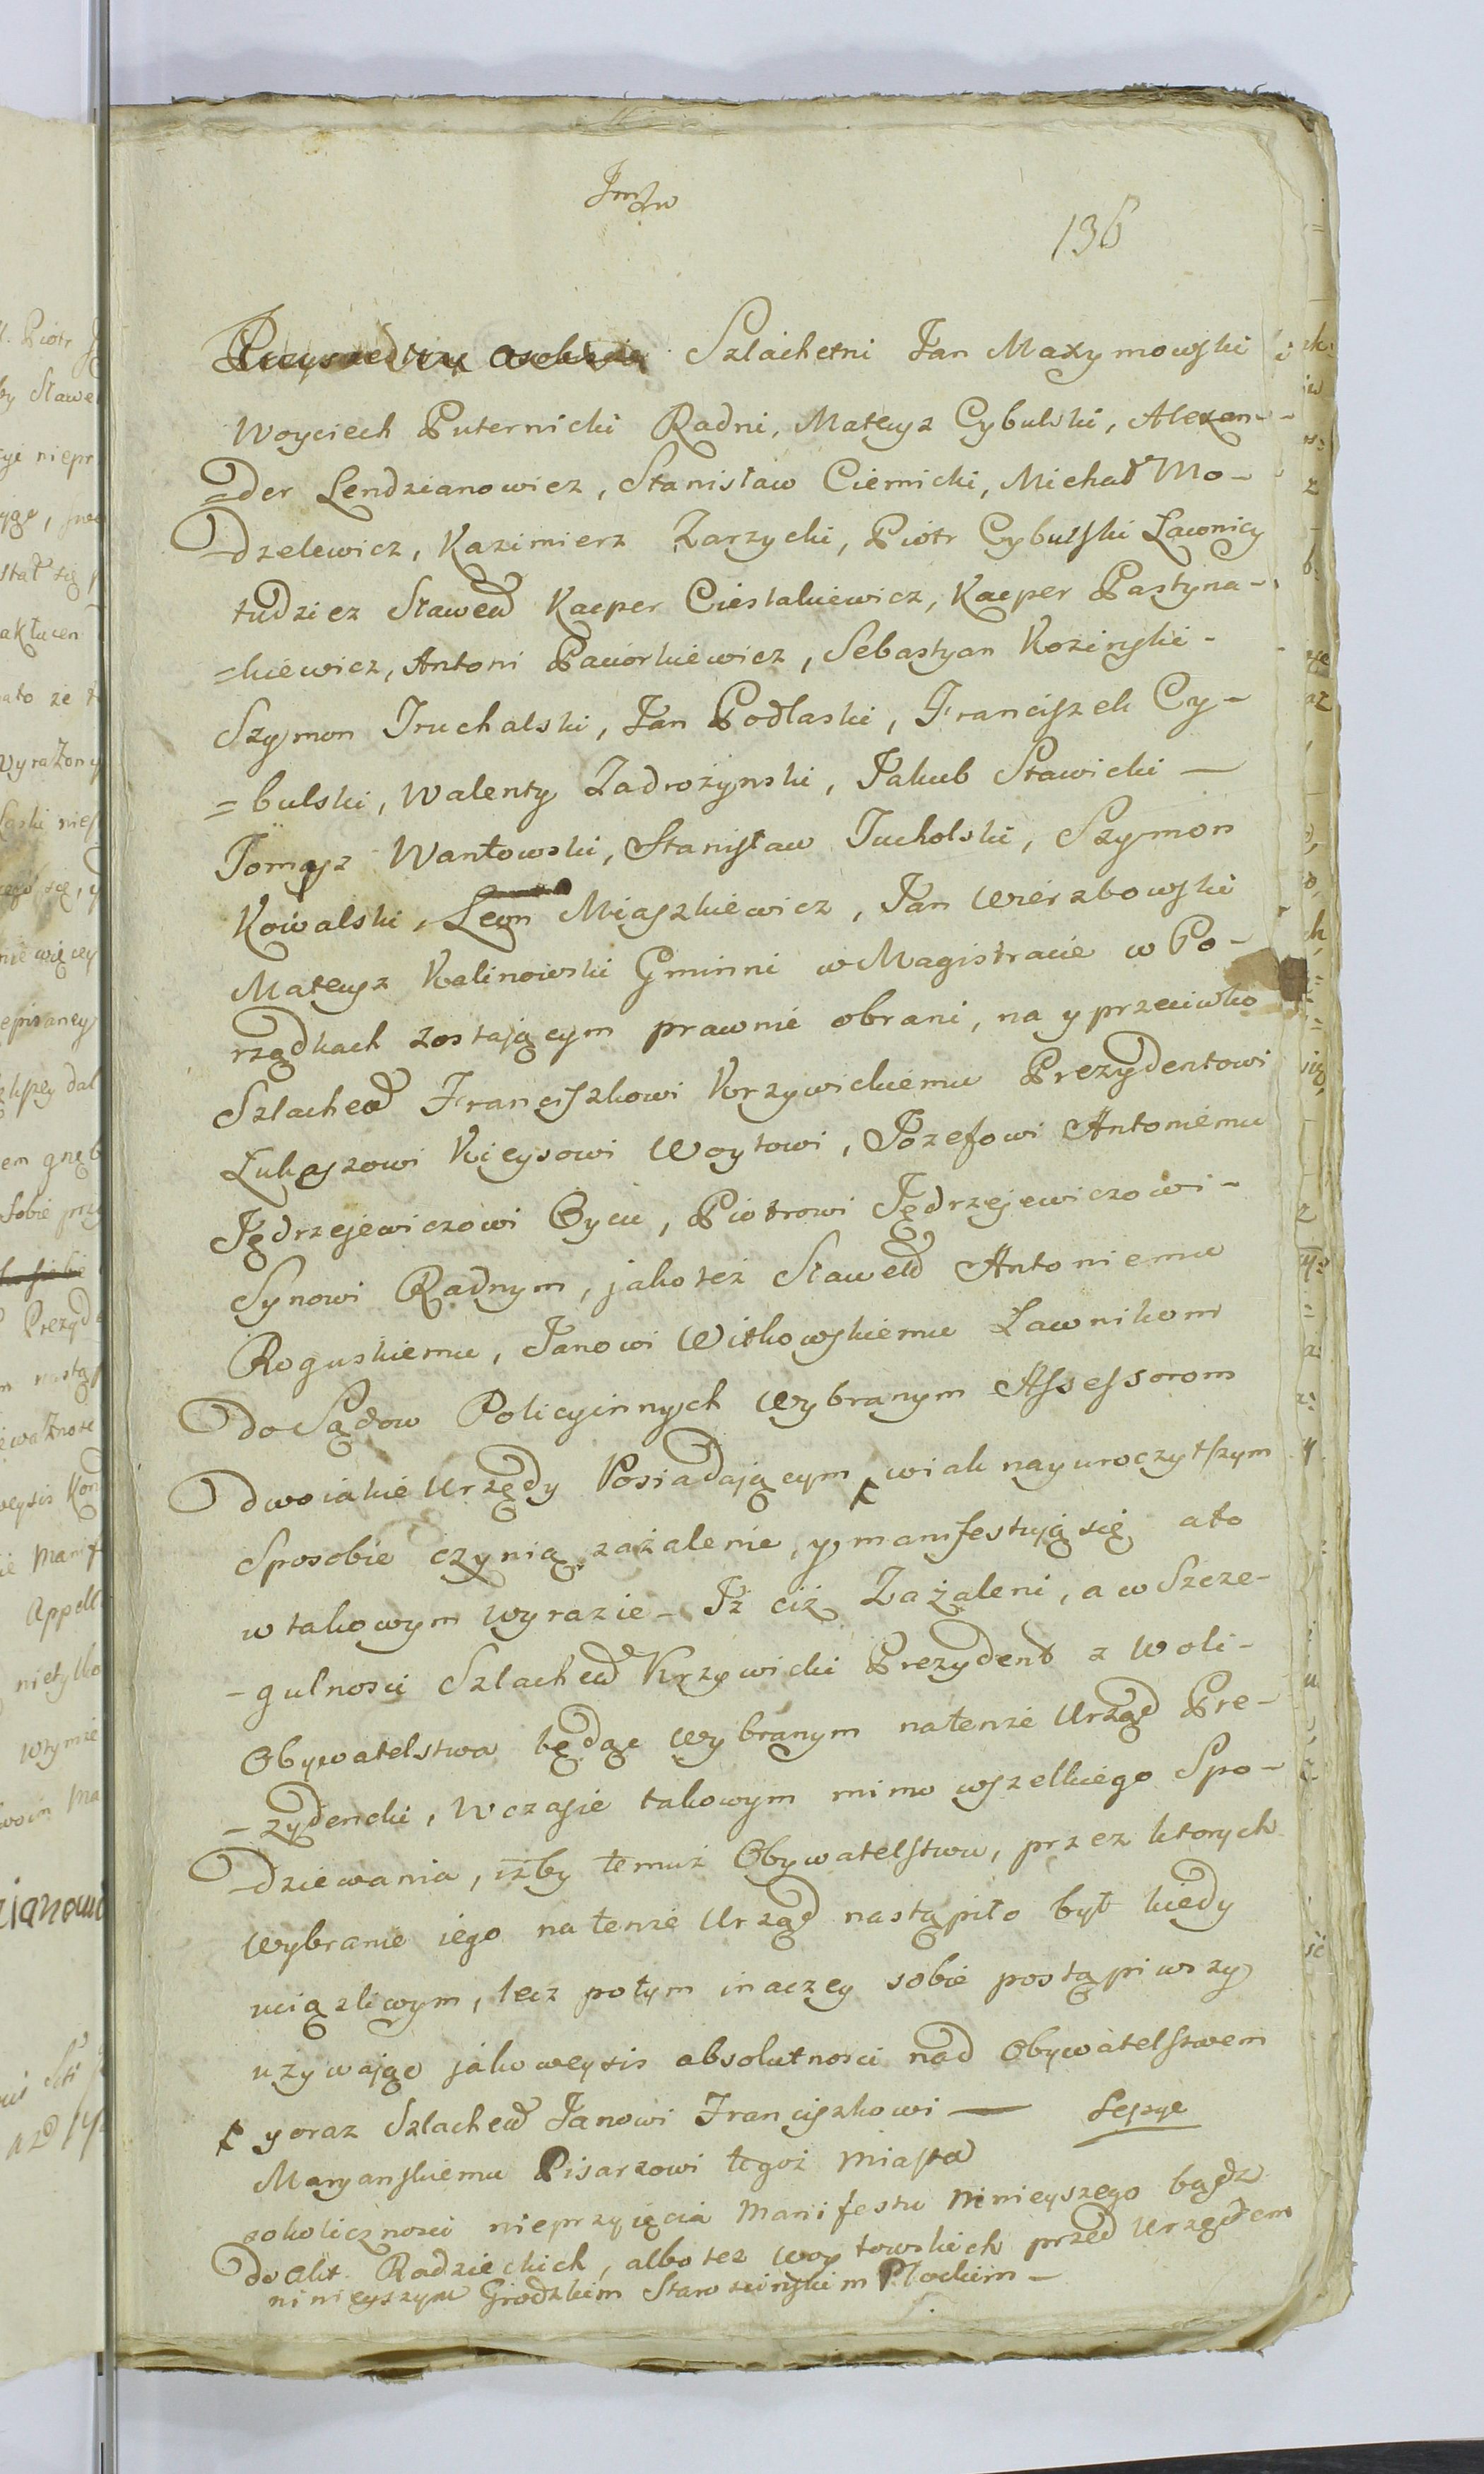 136
Przyszedłszy osobiście Szlachetni Jan Maxymowski
Woyciech Puternicki Radni, Mateusz Cybulski, Alexan-
=der Lendzianowicz, Stanisław Ciernicki, Michał Mo-
-dzelewicz, Kazimierz Zarzycki, Piotr Cybulski Ławnicy
tudziez Sławetd Kacper Ciestakiewicz, Kacper Pastyna-
=kiewicz, Antoni Paciorkiewicz, Sebastyan Kozinski-
Szymon Truchalski, Jan Podlaski, Franciszek Cy-
=bulski, Walenty Zadrożynski, Jakub Sławicki —
Tomasz Wantowski, Stanisław Tucholski, Szymon
Kowalski, Leon Miaszkiewicz, Jan Wierzbowski
Mateusz Kalinowski Gminni w Magistracie w Po-
rządkach zostającym prawnie obrani, na y przeciwko
Szlachetd Franciszkowi Krzywickiemu Prezydentowi
Łukaszowi Kieysowi Woytowi, Jozefowi Antoniemu
Jędrzejewiczowi Oycu, Piotrowi Jędrzejewiczowi-
Synowi Radnym, jakoteż Sławetd Antoniemu
Roguskiemu, Janowi Witkowskiemu Ławnikom
do Sądow Policyinnych wybranym Assessorom
dwoiakie Urzędy Posiadającym wiak nayuroczytszym
Sposobie czynią zażalenie, y manifestują się ato
w takowym wyrazie - Iż ciż Zażaleni, a w Szcze-
-gulnosci Szlachetd Krzywicki Prezydent z woli-
Obywatelstwa będąc wybranym natenże Urząd Pre-
-zydencki, w czasie takowym mimo wszelkiego Spo-
-dziewania, iżby temuż Obywatelstwu, przez ktorych
wybranie iego na tenże Urząd nastąpiło był kiedy
uciązliwym, lecz potym inaczey sobie postąpiwszy
używając jakoweysis absolutnosci nad Obywatelstwem
y oraz Szlachetd Janowi Franciszkowi —
Maryanskiemu Pisarzowi tegoż Miasta
zokolicznosci nieprzyięcia Manifestu Ninieyszego bądz
do Akt Radzieckich, albo tez woytowskich przed Urzędem
ninieyszym Grodzkim Staroscinskim Płockim —